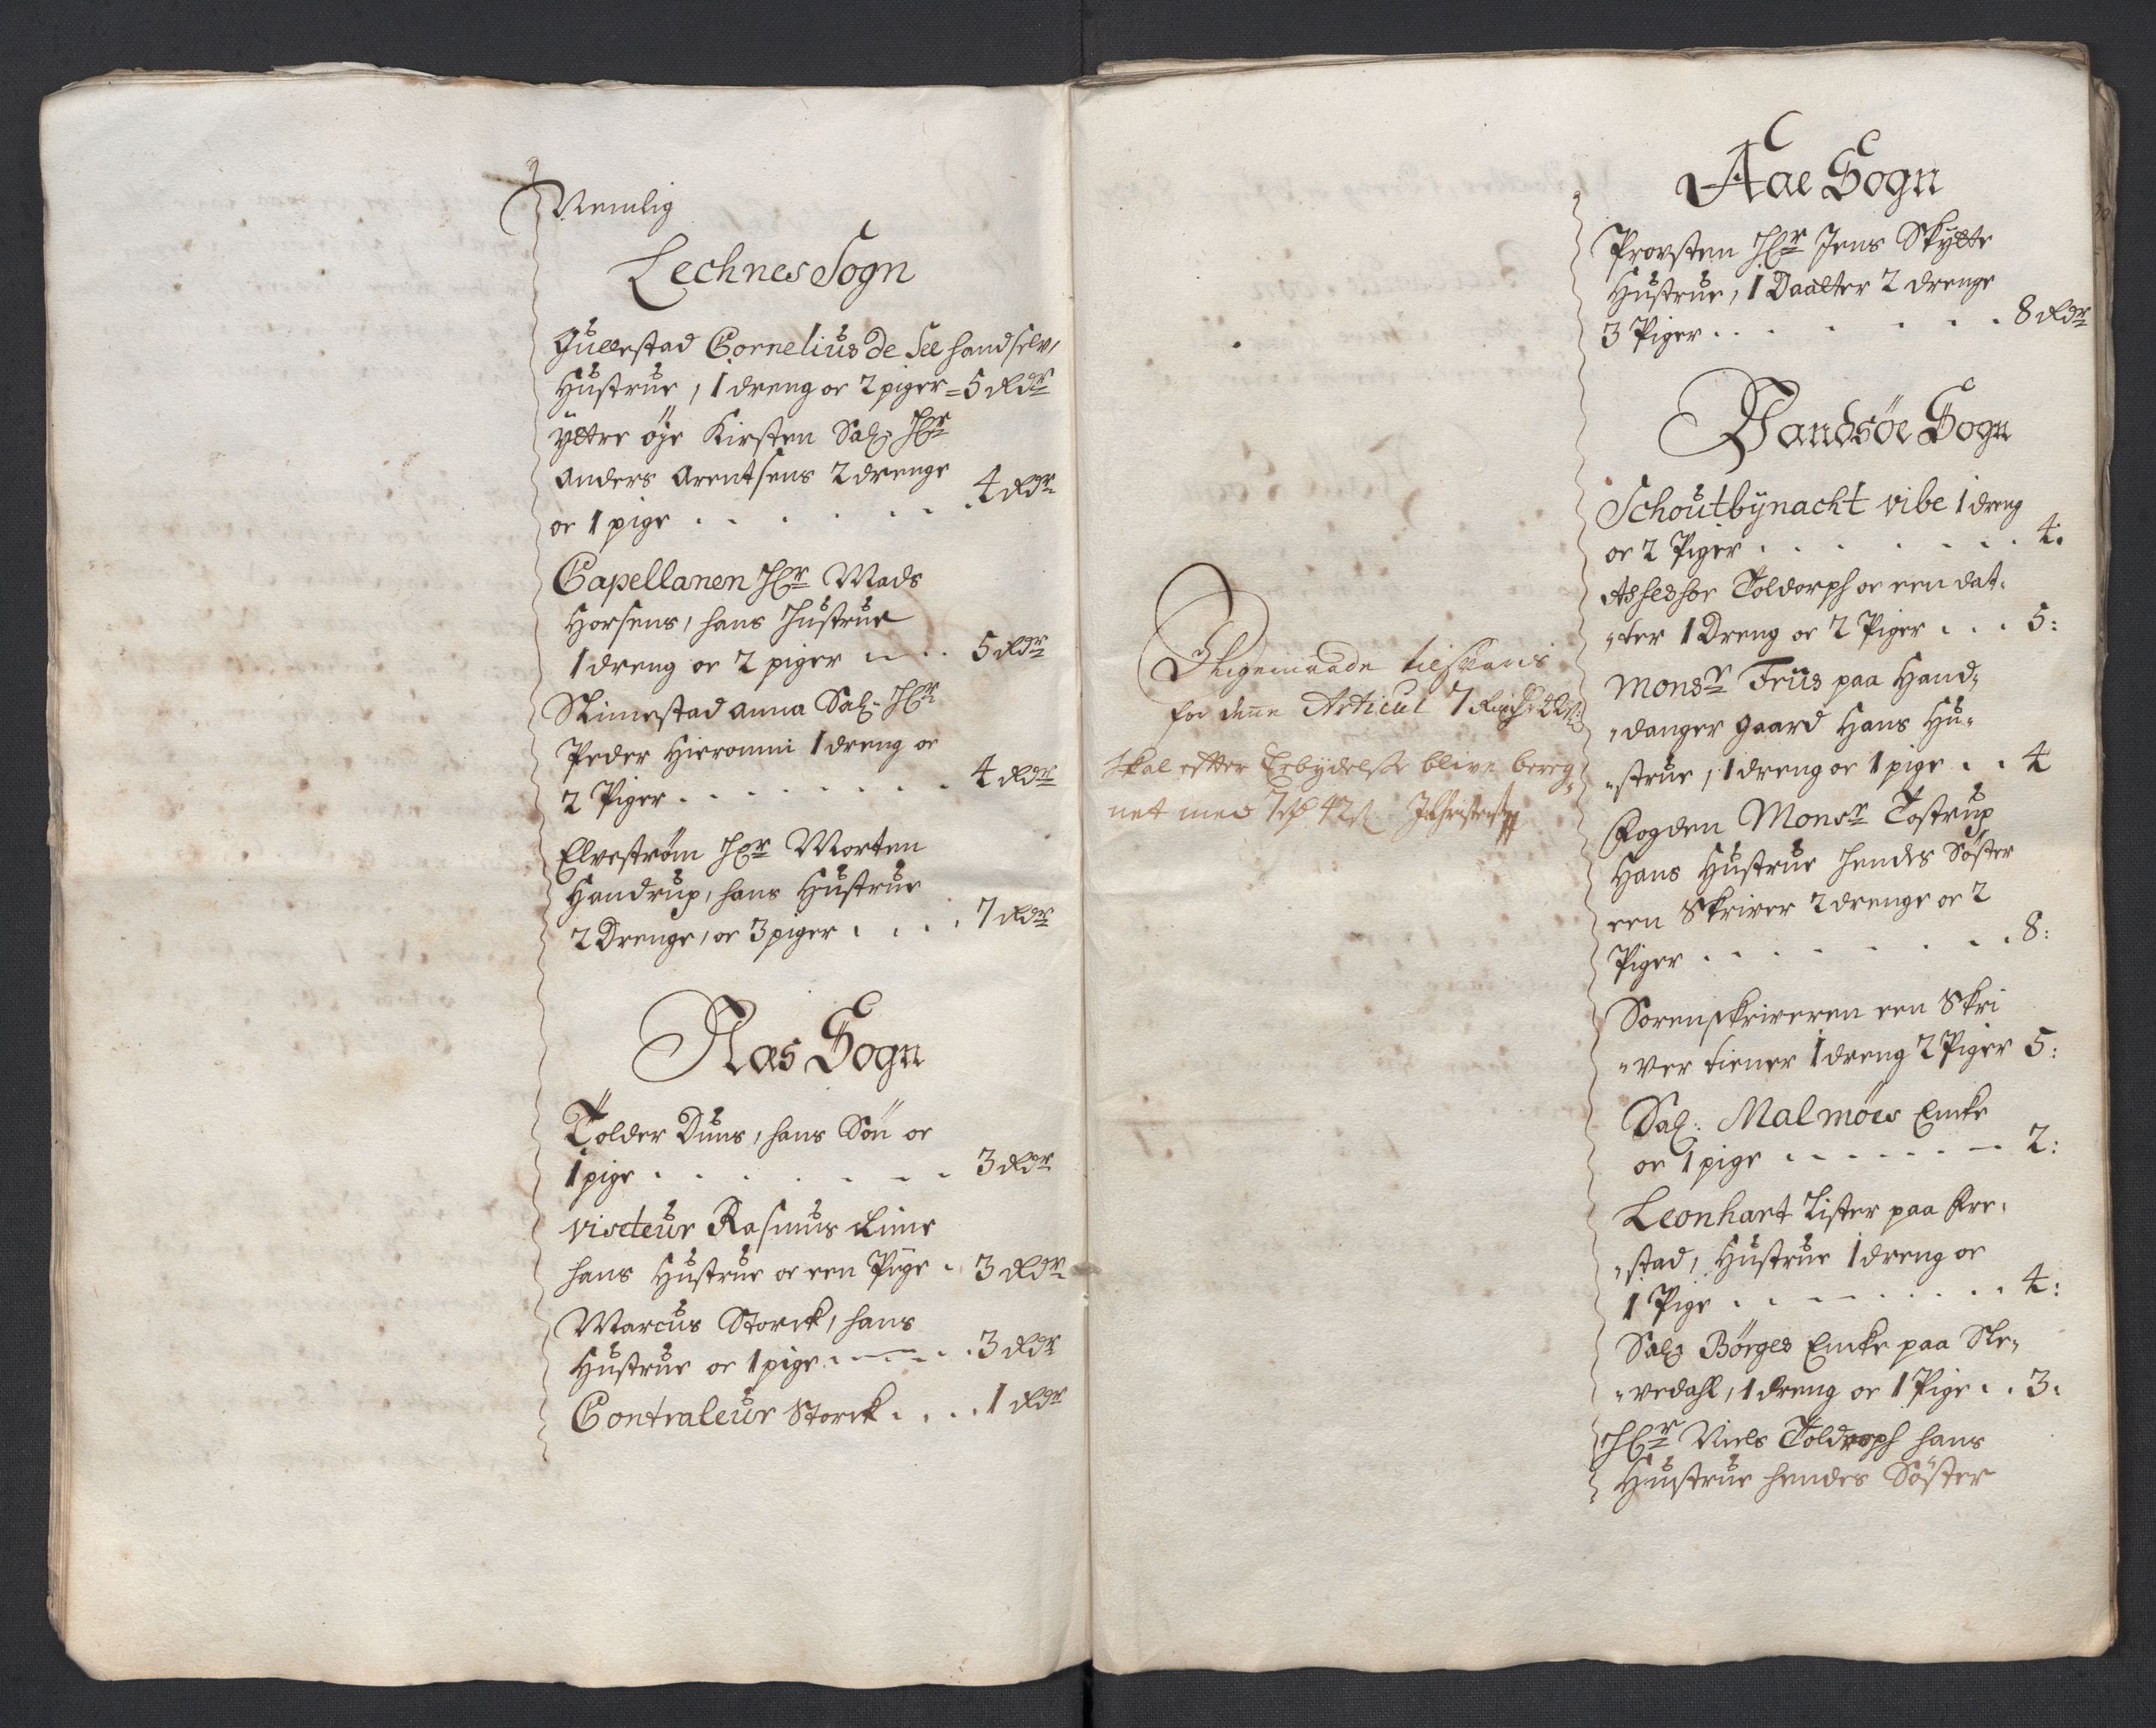 Nemlig
Lechnes Sogn
Gullestad Cornelius de See hand selv,
Hustrue, 1 dreng oc 2 piger = 5 Rdr
Yttre øye Kirsten Sal. Hr
Anders Arentsens 2 drenge
oc 1 pige . . . . . . . 4 Rdr
Capellanen Hr Mads
Horsens, hans Hustrue
1 dreng oc 2 piger . . . 5 Rdr
Skimestad anna Sal. Hr
Peder Hieronimi 1 dreng oc
2 Piger . . . . . . . . 4 Rdr
Elvestrøm Hr Morten
Handrup, hans Hustrue
2 Drenge, oc 3 piger . . . . 7 Rdr
Aas Sogn
Tolder Duus, hans Søn oc
1 pige . . . . . . . 3 Rdr
Visiteur Rasmus Lime
hans Hustrue oc een Pige . 3 Rdr
Marcus Storck, hans
Hustrue oc 1 pige . . . . . 3 Rdr
Contraleur Storck . . . . 1 Rdr
Ligemaade
for denne Articul 7
skal efter Erbydelse blive bereg-
net med 7
Aae Sogn
Provsten Hr Jens Skytte
Hustrue, 1 Daatter 2 drenge
3 Piger . . . . . . . 8 Rdr
Vandsøe Sogn
Schoutbynacht vibe 1 dreng
oc 2 Piger . . . . . . . 4.
Assessor Toldorph oc een dat-
„ter 1 Dreng oc 2 Piger . . . 5:
Monsr Friis paa Hand-
„danger gaard Hans Hu-
„strue, 1 dreng oc 1 pige . . 4
Fogden Monsr Tostrup
Hans Hustrue Hendes Søster
een Skriver 2 drenge oc 2
Piger . . . . . . . . 8:
Sorenskriveren een Skri
„ver tiener 1 dreng 2 Piger 5:
Sal: Malmöes Encke
oc 1 pige . . . . . . . 2:
Leonhart Lister paa Fre-
„stad, Hustrue 1 dreng oc
1 Pige . . . . . . . . 4:
Sal. Børges Encke paa Sle-
„vedahl, 1 dreng oc 1 Pige . . 3.
Hr Niels Toldorph hans
Hustrue hendes Søster